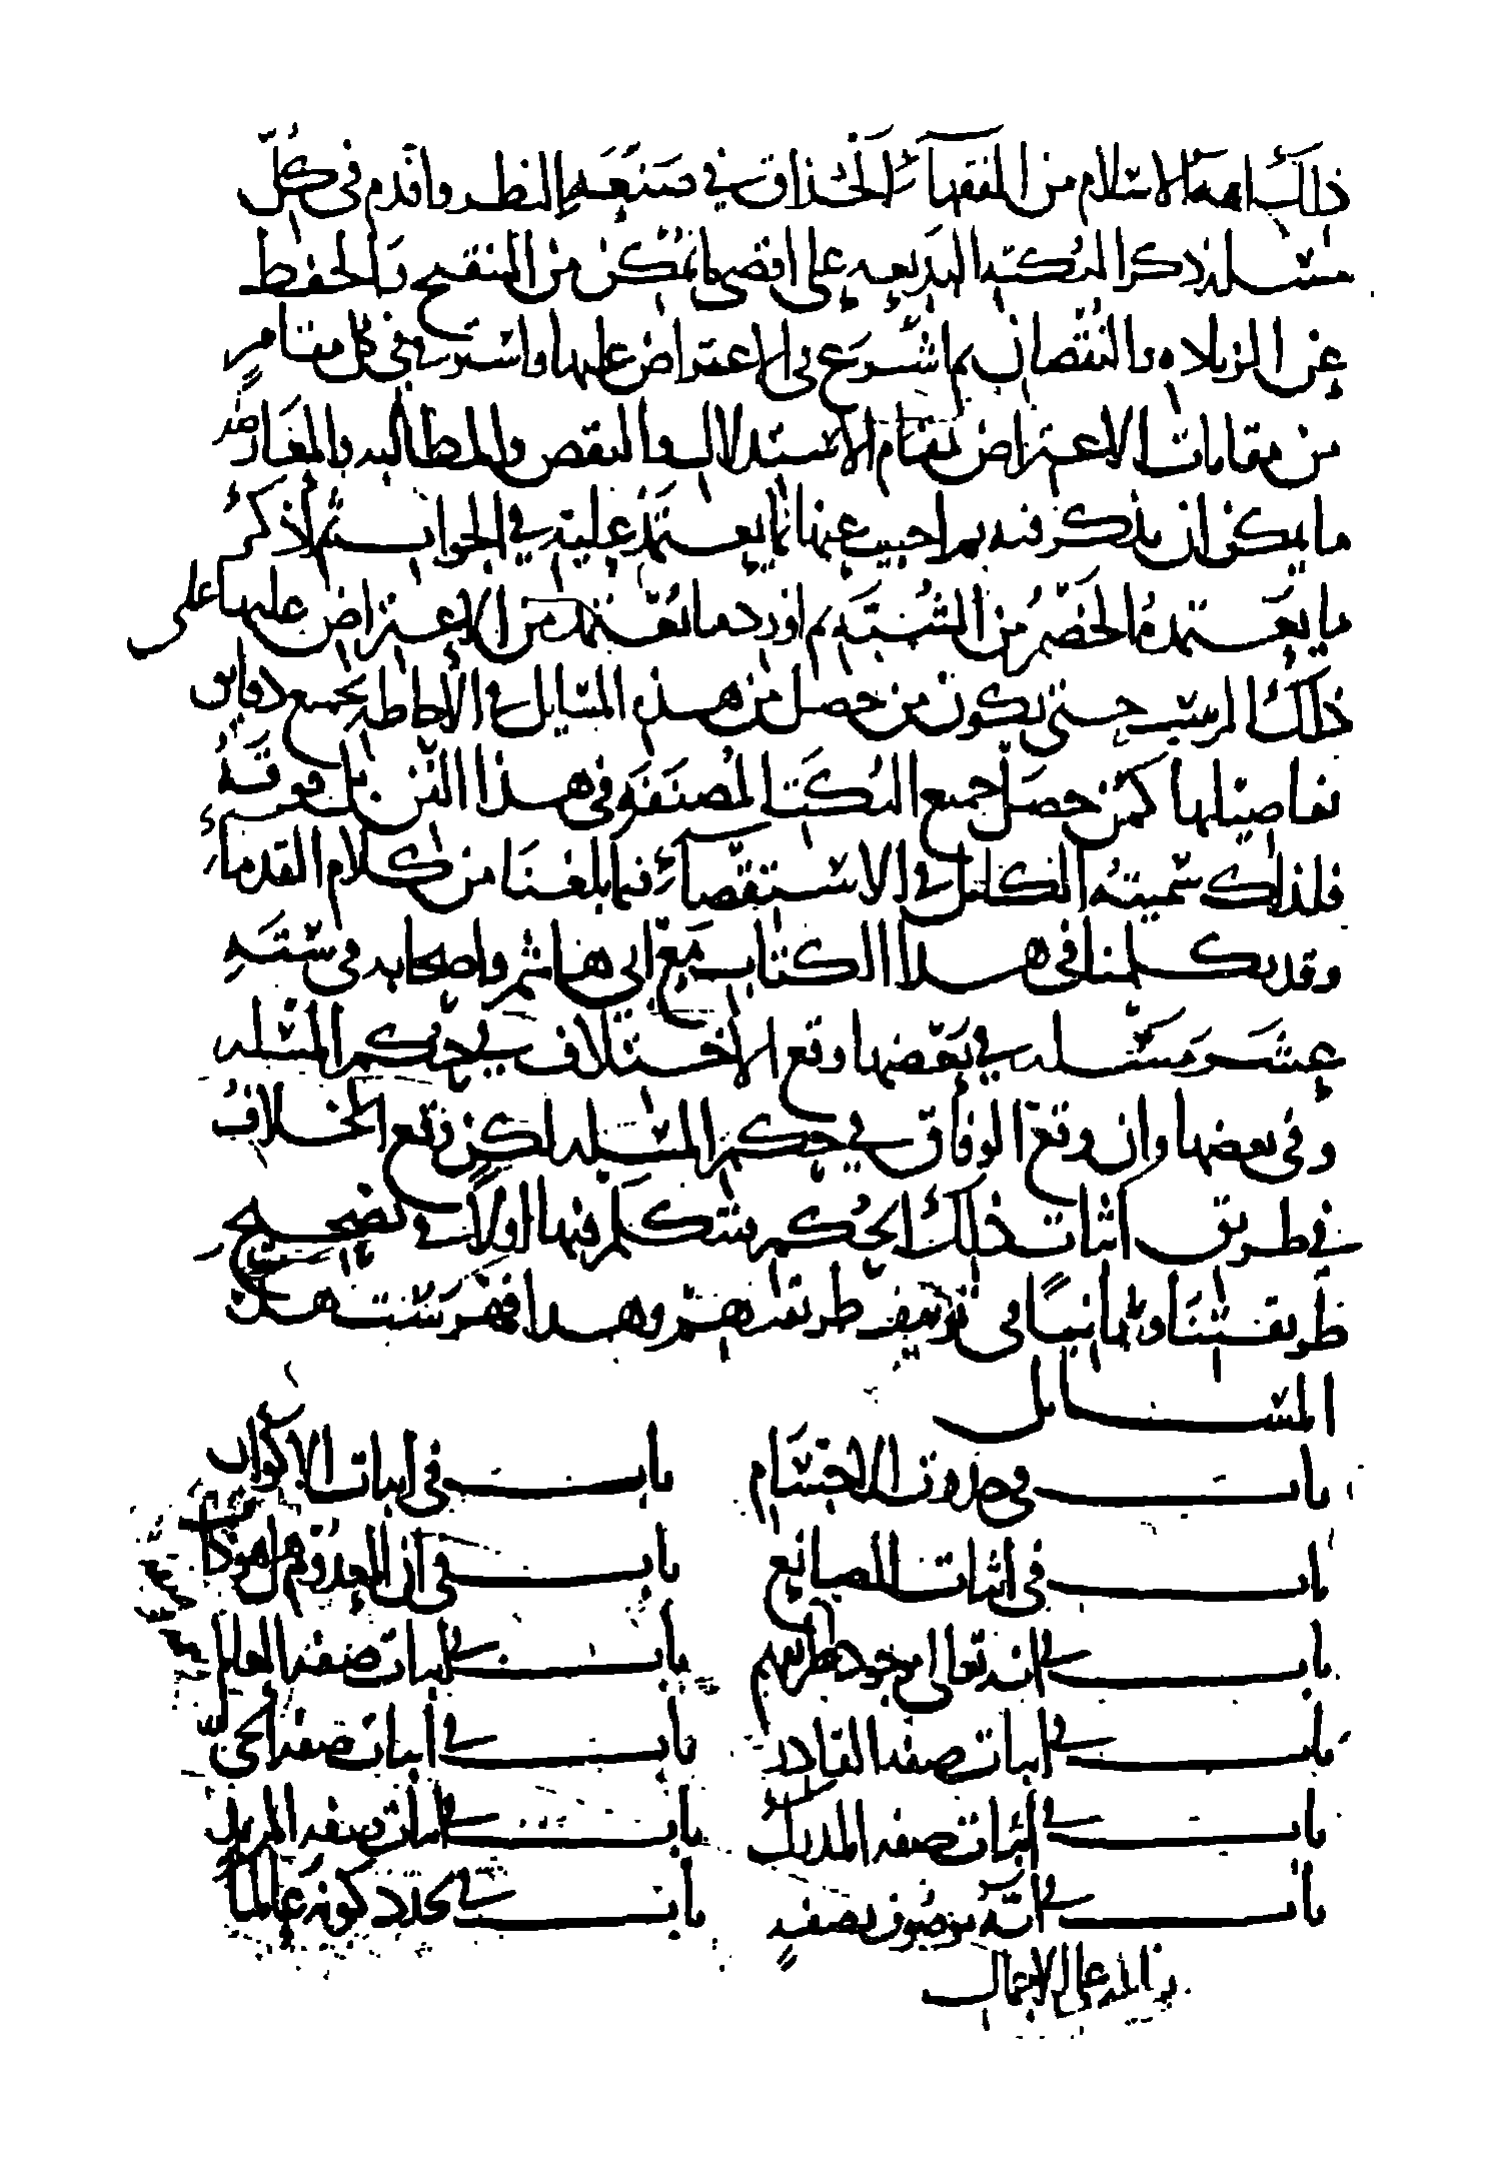 ذلك ائمة الاسلام من الفقهاء الحذاق في صنعة النظر واقدم في كل
مسئلة ذكر النكتة البديعة على اقصى ما يمكن من التنقيح والحفظ
عن الزيادة والنقصان ثم اشرع في الاعتراض عليها واستوفي في كل مقام
من مقامات الاعتراض مقام الاستدلال والنقض والمطالبة والمعارضة
ما يمكن ان يذكر فيه ثم اجيب عنها بما يعتمد عليه في الجواب ثم اذكر
ما يعتمده الخصم من الشبه ثم اورد ما يعتمد من الاعتراض عليها على
ذلك الترتيب حتى يكون من حصل من هذه المسايل في الاحاطة بجميع دقايق
تفاصيلها كمن حصل جميع الكتب المصنفة في هذا الفن بل فوقه
فلذلك سميته الكامل في الاستقصاء فيما بلغنا من كلام القدماء
وقد تكلمنا في هذا الكتاب مع ابي هاشم واصحابه في ستة
عشر مسئلة في بعضها وقع الاختلاف في حكم المسئلة
وفي بعضها وان وقع الوفاق في حكم المسئلة لكن وقع الخلاف
في طريق اثبات ذلك الحكم فنتكلم فيها اولا في تصحيح
طريقتنا وثانيا في تزييف طريقتهم وهذا فهرست هذه
المسايل
باب في حدوث الاجسام باب في اثبات الاكوان
باب في اثبات الصانع باب في ان المعدوم هل هو ذات
باب في انه تعالى موجود باب في اثبات صفة العالم
باب في اثبات صفة القادر باب في اثبات صفة الحي
باب في اثبات صفة المدرك باب في اثبات صفة المريد
باب في انه موصوف بصفة باب في تجدد كونه عالما
زايدة على الاجمال